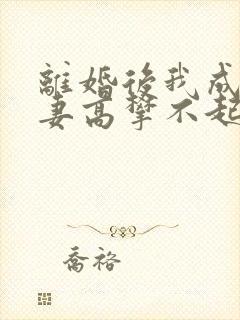 離婚後我成
妻高攀不起
喬裕